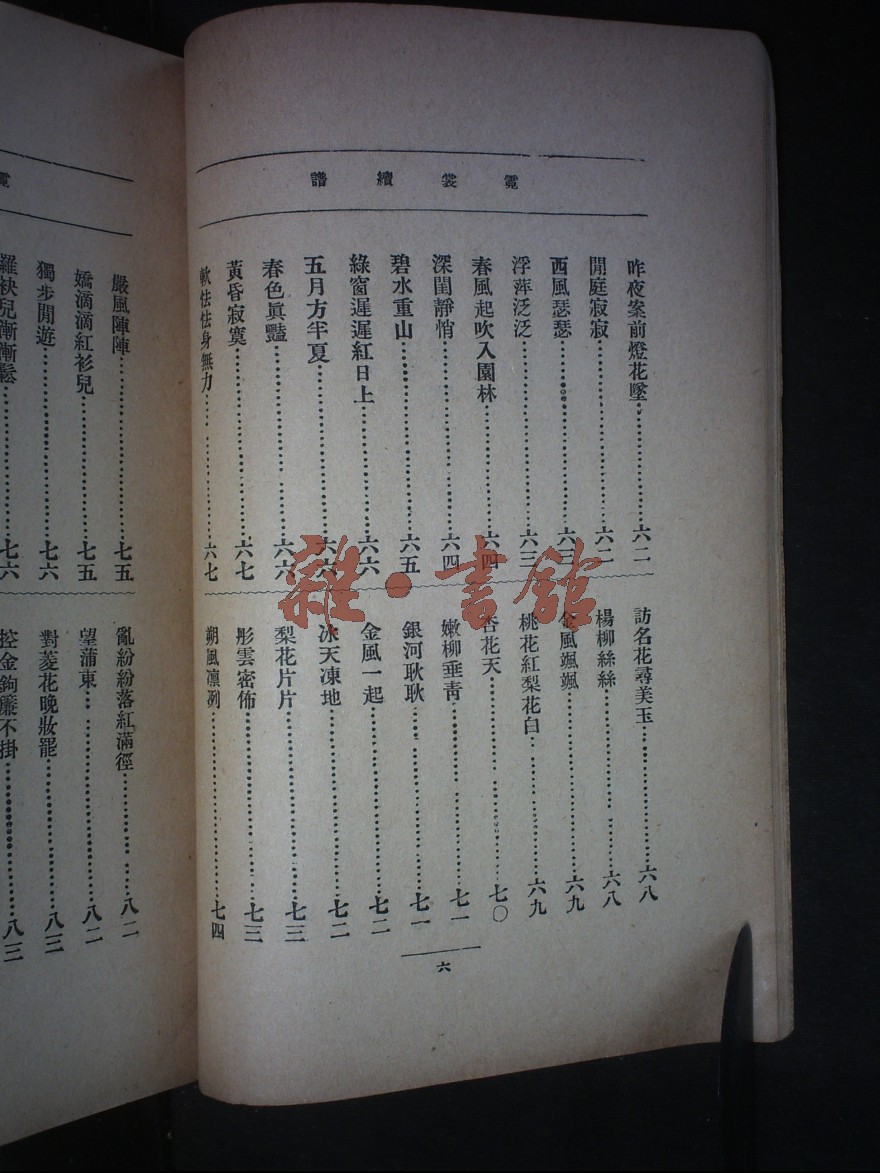 霓裳續譜
昨夜案前燈花墜……六二
閒庭寂寂……六二
西風瑟瑟……六三
浮萍泛泛……六三
春風起吹入園林……六四
深閨靜悄……六四
碧水重山……六五
綠窗遲遲紅日上……六六
五月方半夏……六六
春色眞豔……六六
黃昏寂寞……六七
軟怯怯身無力……六七
訪名花尋美玉……六八
楊柳絲絲……六八
金風颯颯……六九
桃花紅梨花白……六九
杏花天……七〇
嫩柳垂青……七一
銀河耿耿……七一
金風一起……七二
冰天凍地……七二
梨花片片……七三
彤雲密佈……七三
朔風凛冽……七四
六
霓
嚴風陣陣……七五
嬌滴滴紅衫兒……七五
獨步閒遊……七六
羅袂兒漸漸鬆……七六
亂紛紛落紅滿徑……八二
望蒲東……八二
對菱花晚妝罷……八三
控金鉤簾不掛……八三
雜·書館